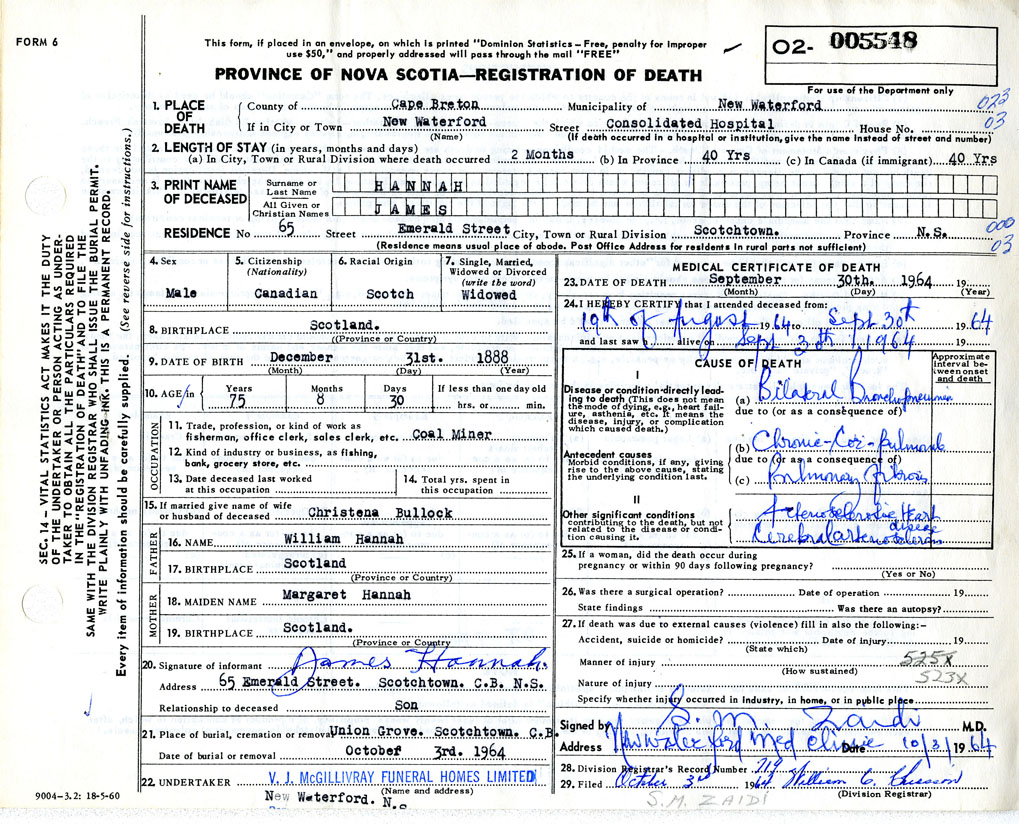 FORM 6
This form, if placed in an envelope, on which is printed "Dominion Statistics—Free, penalty for improper
use $50," and properly addressed will pass through the mail "FREE"
O2- 005548
PROVINCE OF NOVA SCOTIA—REGISTRATION OF DEATH
For use of the Department only
SEC. 14—VITAL STATISTICS ACT MAKES IT THE DUTY
OF THE UNDERTAKER OR PERSON ACTING AS UNDER-
TAKER TO OBTAIN ALL THE PARTICULARS REQUIRED
IN THE "REGISTRATION OF DEATH" AND TO FILE THE
SAME WITH THE DIVISION REGISTRAR WHO SHALL ISSUE THE BURIAL PERMIT.
WRITE PLAINLY WITH UNFADING INK. THIS IS A PERMANENT RECORD.
Every item of information should be carefully supplied. (See reverse side for instructions.)
1. PLACE OF DEATH
County of Cape Breton Municipality of New Waterford 023
If in City or Town New Waterford Street Consolidated Hospital House No. 03
(Name) (If death occurred in a hospital or institution, give the name instead of street and number)
2. LENGTH OF STAY (in years, months and days)
(a) In City, Town or Rural Division where death occurred 2 Months (b) In Province 40 Yrs (c) In Canada (if immigrant) 40 Yrs
3. PRINT NAME OF DECEASED
Surname or Last Name HANNAH
All Given or Christian Names JAMES
RESIDENCE No 65 Street Emerald Street City, Town or Rural Division Scotchtown. Province N.S. 000
03
(Residence means usual place of abode. Post Office Address for residents in rural parts not sufficient)
4. Sex
Male
5. Citizenship
(Nationality)
Canadian
6. Racial Origin
Scotch
7. Single, Married,
Widowed or Divorced
(write the word)
Widowed
8. BIRTHPLACE Scotland.
(Province or Country)
9. DATE OF BIRTH December 31st. 1888
(Month) (Day) (Year)
10. AGE in Years 75 Months 8 Days 30 If less than one day old
hrs. or min.
OCCUPATION
11. Trade, profession, or kind of work as
fisherman, office clerk, sales clerk, etc. Coal Miner
12. Kind of industry or business, as fishing,
bank, grocery store, etc.
13. Date deceased last worked
at this occupation
14. Total yrs. spent in
this occupation
15. If married give name of wife
or husband of deceased Christena Bullock
FATHER
16. NAME William Hannah
17. BIRTHPLACE Scotland
(Province or Country)
MOTHER
18. MAIDEN NAME Margaret Hannah
19. BIRTHPLACE Scotland.
(Province or Country
20. Signature of informant James Hannah
Address 65 Emerald Street. Scotchtown. C.B. N.S.
Relationship to deceased Son
21. Place of burial, cremation or removal Union Grove. Scotchtown. C.B.
Date of burial or removal October 3rd. 1964
22. UNDERTAKER V. J. McGILLIVRAY FUNERAL HOMES LIMITED
(Name and address)
New Waterford. N.S
9004-3.2: 18-5-60
MEDICAL CERTIFICATE OF DEATH
23. DATE OF DEATH September 30th. 1964 19
(Month) (Day) (Year)
24. I HEREBY CERTIFY that I attended deceased from:
19th of August 1964 to Sept 30th 1964
and last saw h alive on Sept 30th, 1964 19
CAUSE OF DEATH
Approximate
interval be-
tween onset
and death
I
Disease or condition directly lead-
ing to death (This does not mean
the mode of dying, e.g., heart fail-
ure, asthenia, etc. It means the
disease, injury, or complication
which caused death.)
(a) Bilateral Bronchopneumonia
due to (or as a consequence of)
Antecedent causes
Morbid conditions, if any, giving
rise to the above cause, stating
the underlying condition last.
(b) Chronic-Cor-pulmonale
due to (or as a consequence of)
(c) Pulmonary fibrosis
II
Other significant conditions
contributing to the death, but not
related to the disease or condi-
tion causing it.
Arteriosclerotic Heart
disease
Cerebral arteriosclerosis
25. If a woman, did the death occur during
pregnancy or within 90 days following pregnancy?
(Yes or No)
26. Was there a surgical operation? Date of operation 19
State findings Was there an autopsy?
27. If death was due to external causes (violence) fill in also the following:—
Accident, suicide or homicide? Date of injury 19
(State which)
Manner of injury 525X
(How sustained) 523X
Nature of injury
Specify whether injury occurred in industry, in home, or in public place
Signed by S. M. Zaidi M.D.
Address New Waterford Med Clinic Date 10/3/1964
28. Division Registrar's Record Number 719
29. Filed October 3rd 1964 William C. Chiasson
(Division Registrar)
S.M. ZAIDI